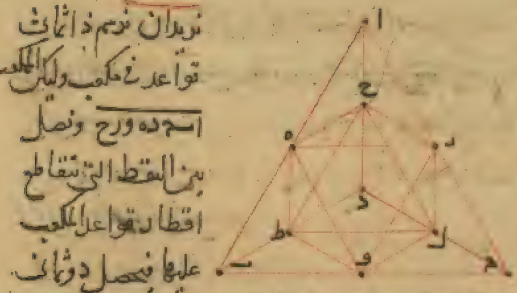 نريد ان نرسم ذا ثمان
قواعد فى مكعب وليكن المكعب
ا ب ح د ه و ر ح ونصل
بين النقط التى تتقاطع
اقطار قواعد المكعب
عليها فيحصل ذو ثمان
ا
ح
ه
ر
د
ط
ك
ب
و
م